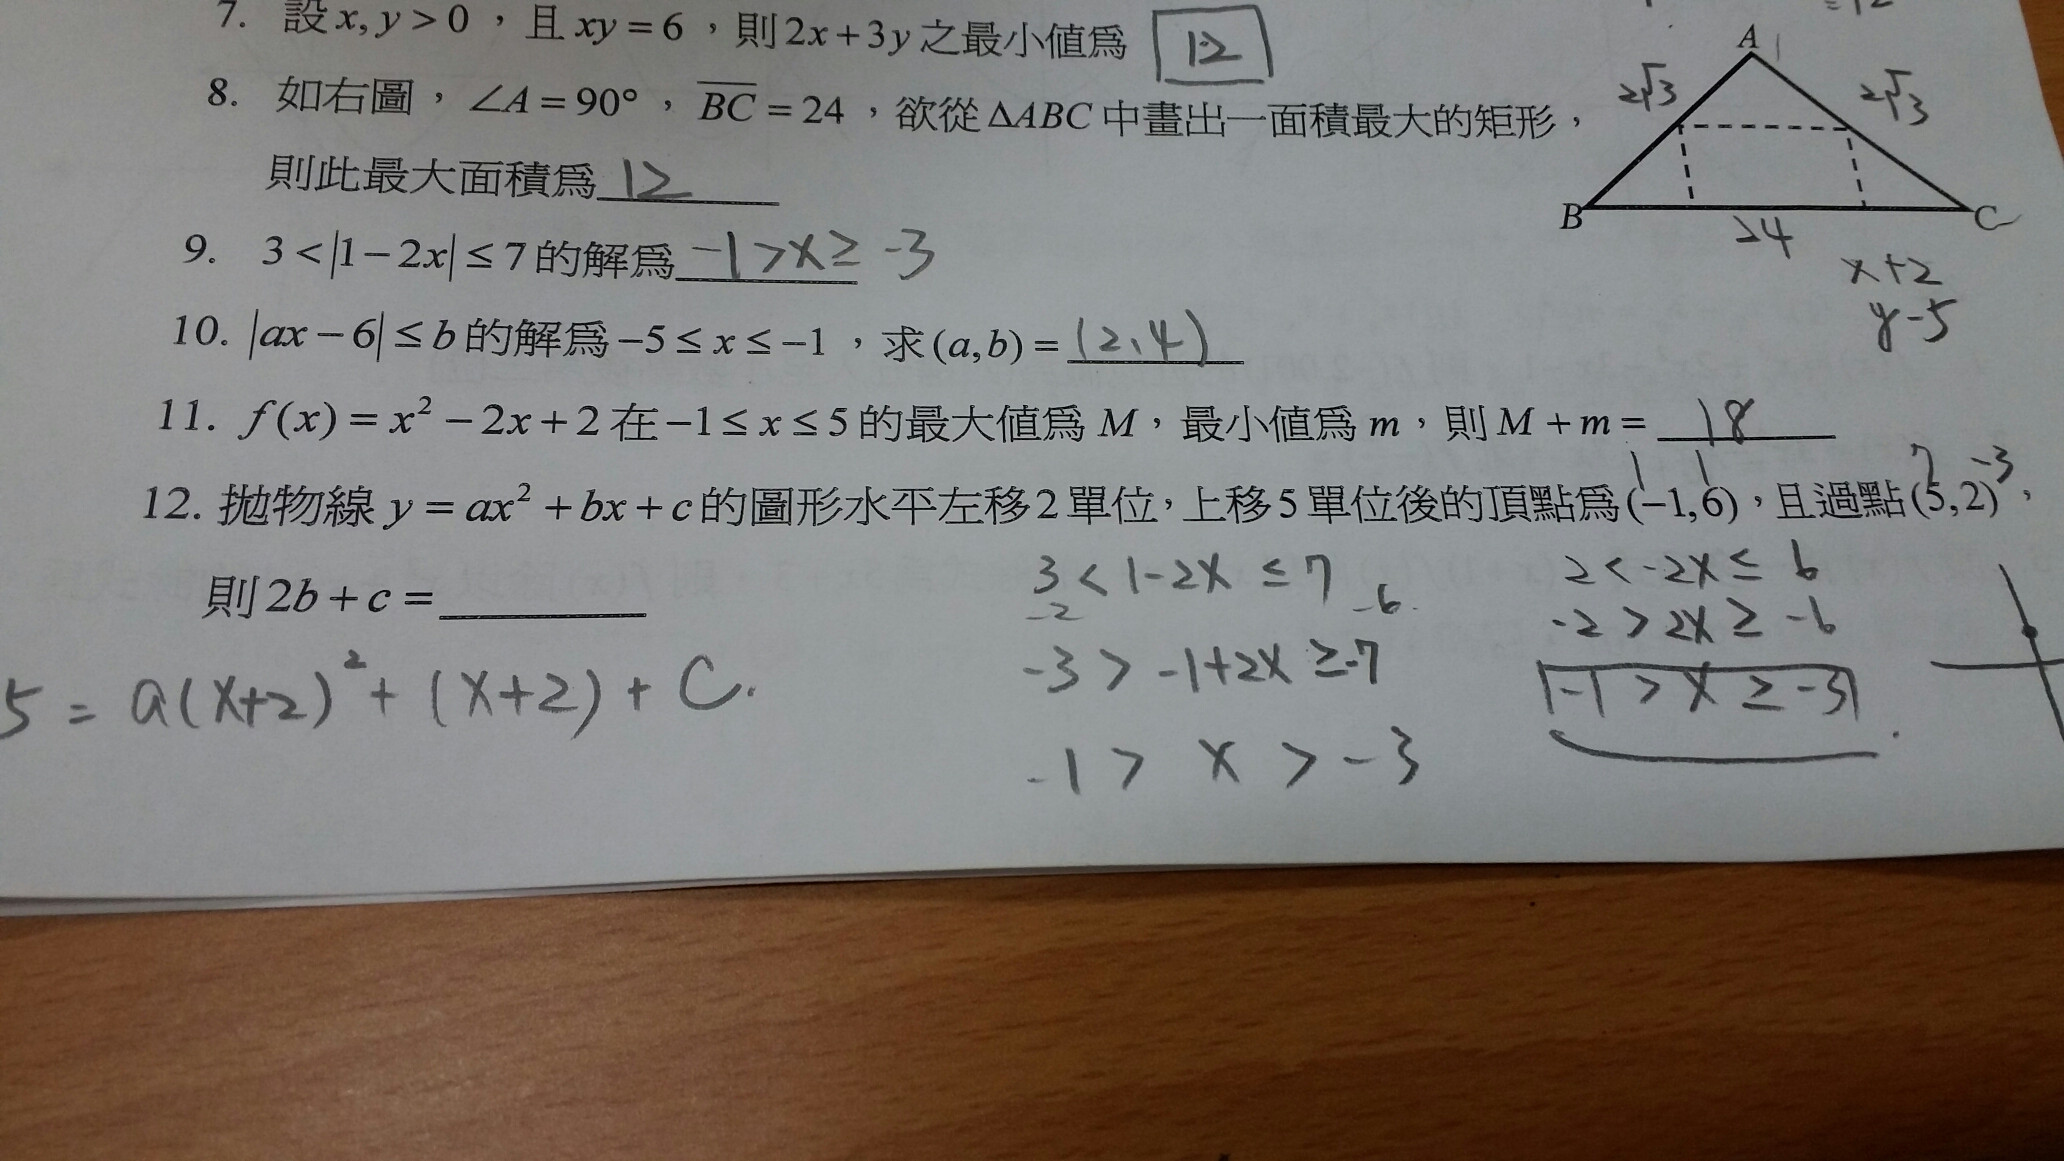 7. 設x, y > 0，且xy = 6，則2x + 3y之最小值為 12
8. 如右圖，∠A = 90°，\overline{BC} = 24，欲從ΔABC中畫出一面積最大的矩形，
則此最大面積為 12
A
2√3
2√3
B
C
24
9. 3 < |1 − 2x| ≤ 7的解為 -1 > x ≥ -3
x+2
y-5
10. |ax − 6| ≤ b的解為−5 ≤ x ≤ −1，求(a,b) = (2、4)
11. f(x) = x² − 2x + 2在−1 ≤ x ≤ 5的最大值為M，最小值為m，則M + m = 18
1 1 7 -3
12. 拋物線y = ax² + bx + c的圖形水平左移2單位，上移5單位後的頂點為(−1,6)，且過點(5,2)，
則2b + c =
3 < 1-2x ≤ 7
-2 -6
-3 > -1+2x ≥ -7
-1 > x > -3
2 < -2x ≤ 6
-2 > 2x ≥ -6
-1 > x ≥ -3
5 = a(x+2)² + (x+2) + C.